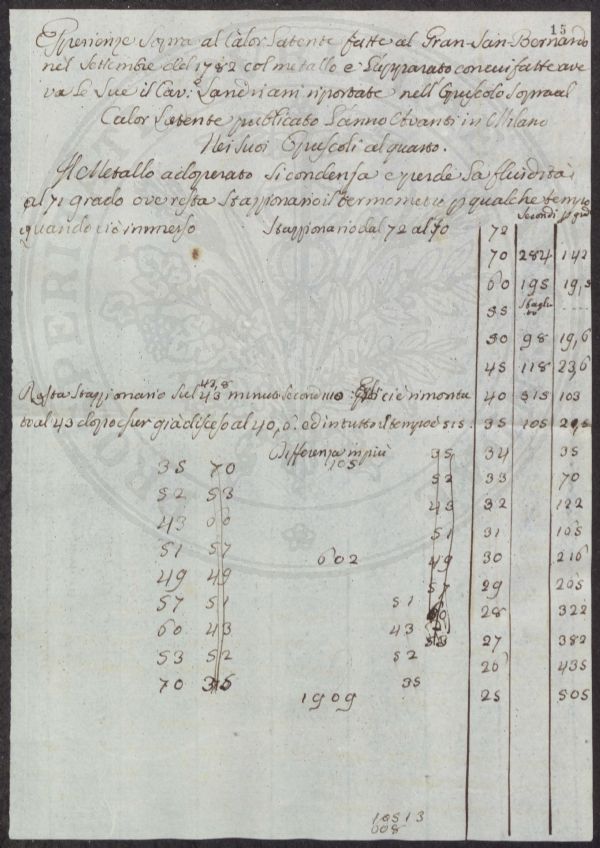 15
Esperienze Sopra al Calor Latente fatte al Gran-San-Bernardo
nel Settembre del 1782 col metallo e L'apparato con cui fatte ave
va le Sue il Cav: Landriani riportate nell'Opuscolo Sopra al
Calor Latente publicato L'anno Avanti in Milano
Nei Suoi Opuscoli al quarto.
Il Metallo adoperato Si condensa e perde La fluidità
al 71 grado ove resta Stazzionario il termometro p qualche tempo
quando ci è immerso Stazzionario dal 72 al 70
Secondi p grado
72
70 284 142
60 195 19,5
55 Sbaglio
50 98 19,6
45 118 23,6
Resta Stazzionario Sul 43 43,8 minuti secondi ci è rimonta
to al 43 dopo che già disceso al 40, ed in tutto il tempo è 515.
40 515 103
35 105 21,
Differenza in più
105
34 35
33 70
32 122
31 165
30 216
29 265
28 322
27 382
26 435
25 505
35 70
52 53
43 60
51 57
49 49
57 51
60 43
53 52
70 35
602
1909
35
52
43
51
49
57
60
53
51
43
52
35
10513
608